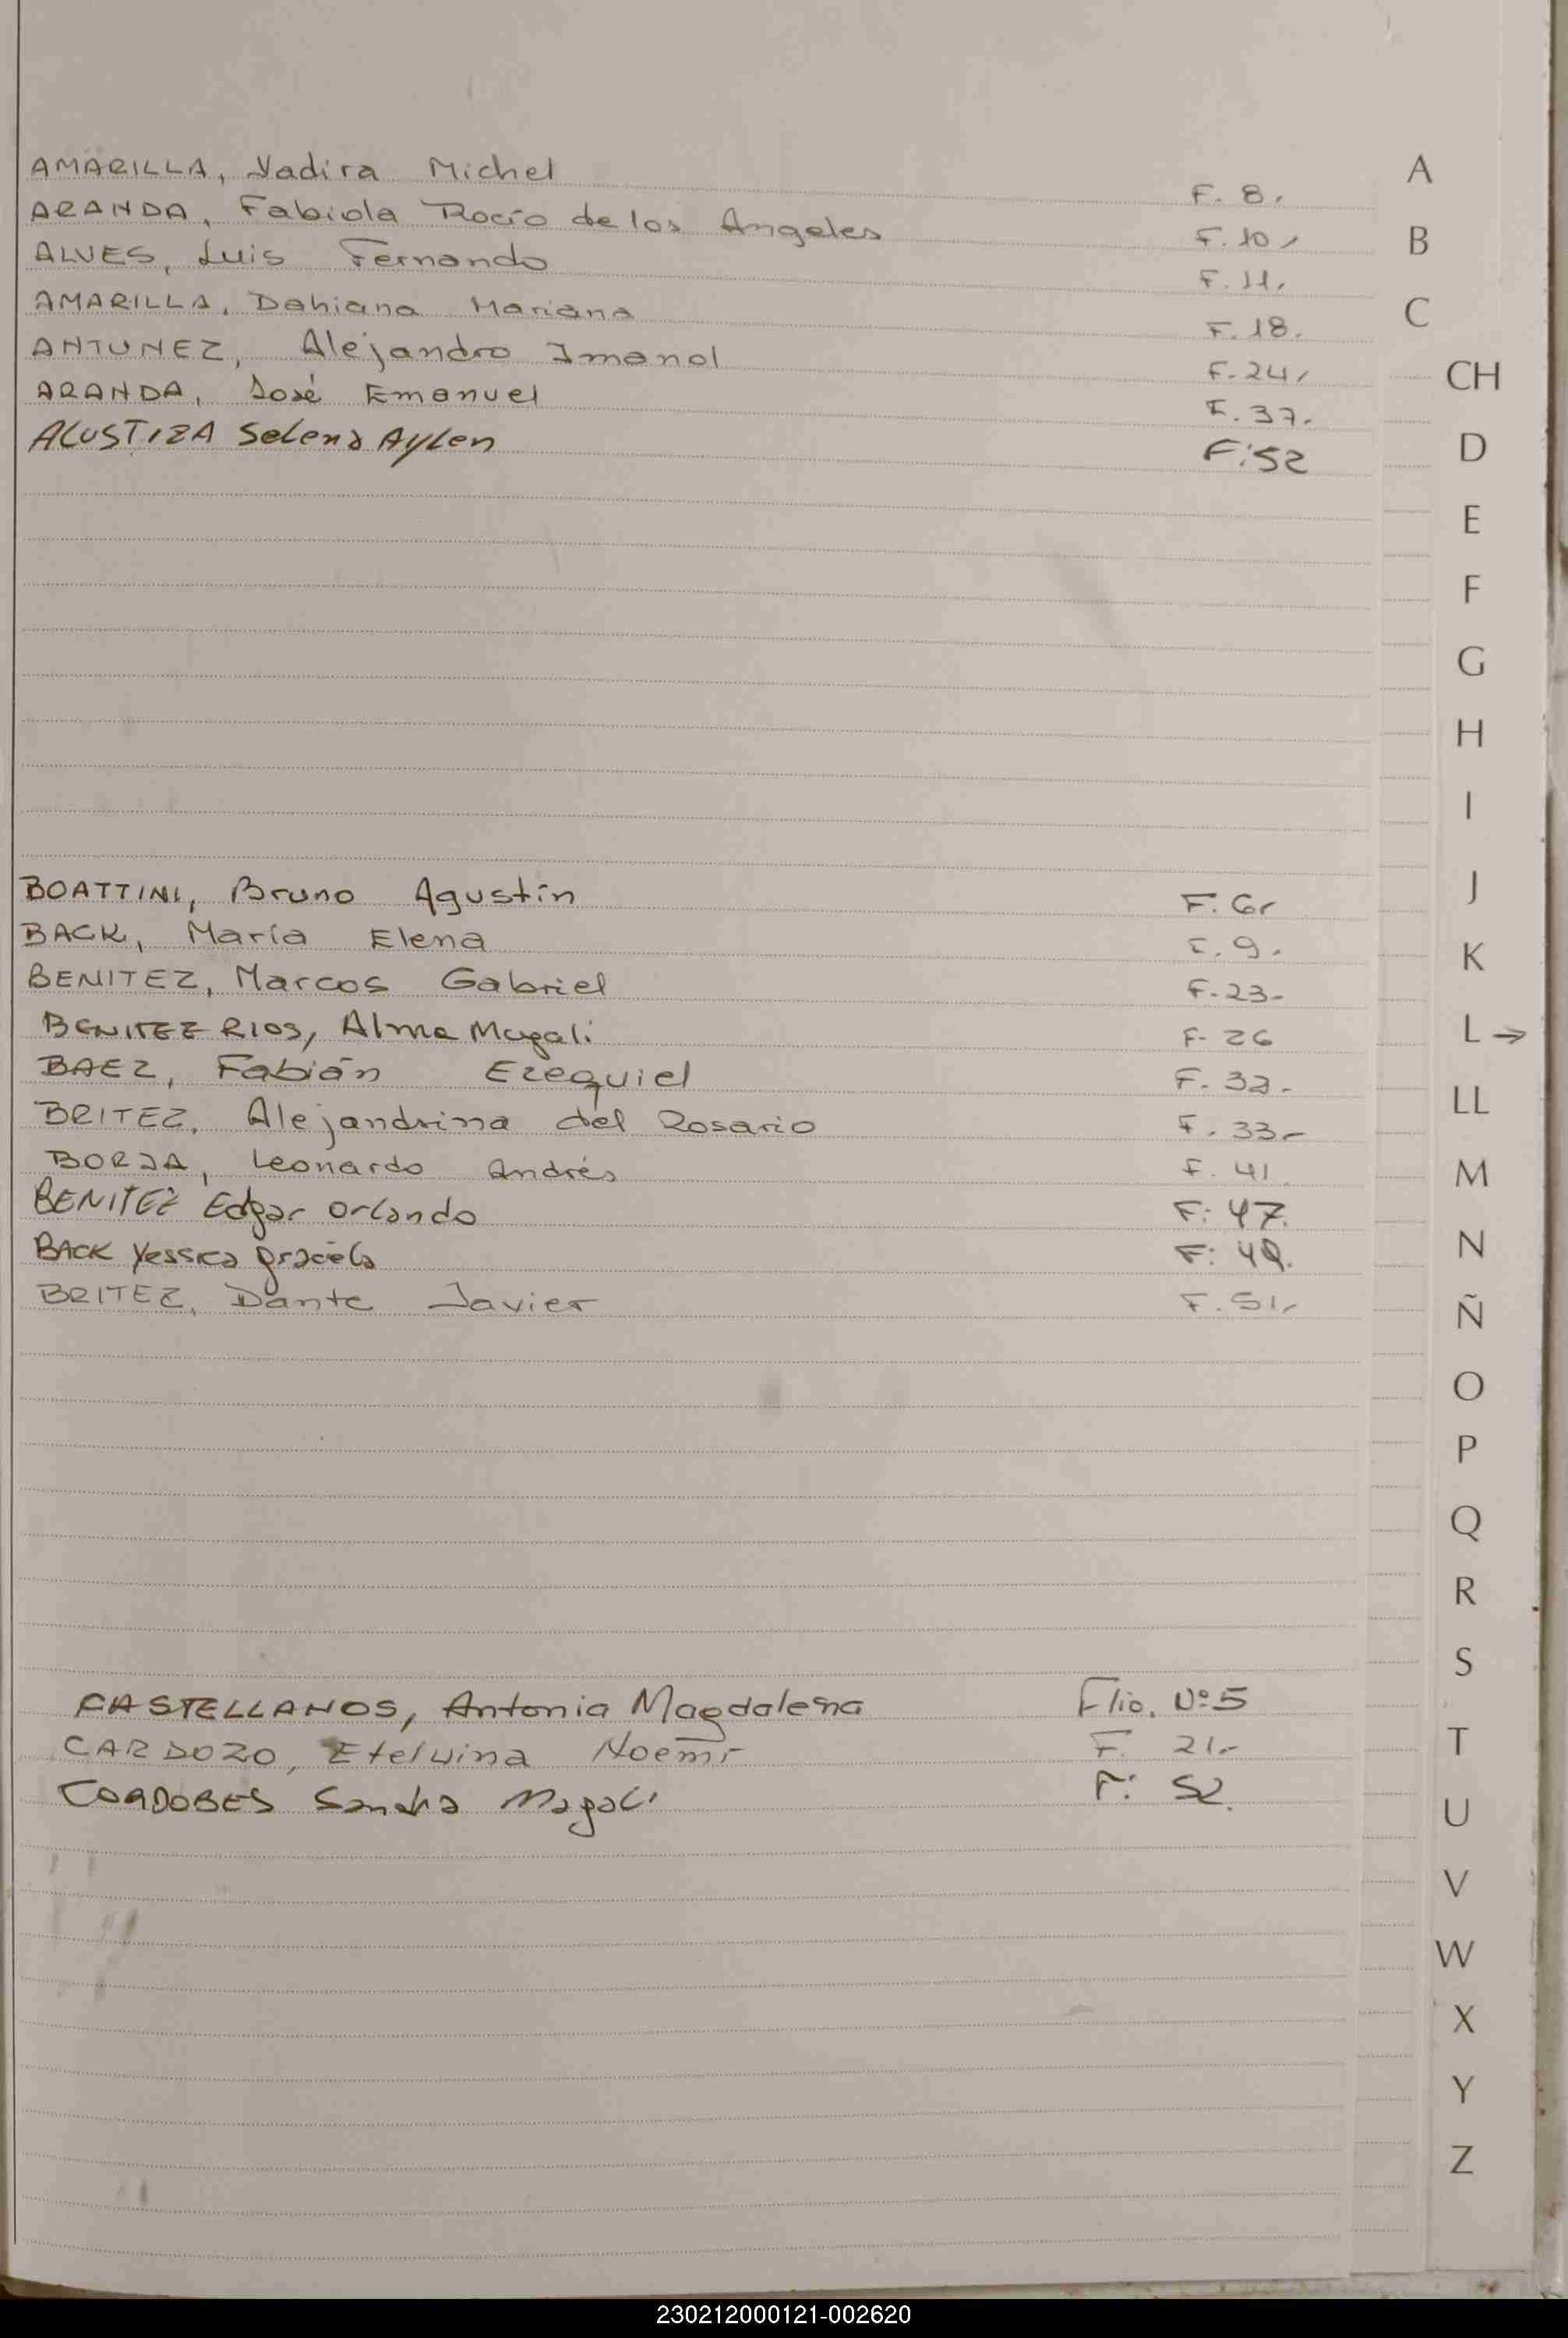 AMARILLA, Yadira Michel F. 8.
ARANDA, Fabiola Rocío de los Angeles F. 10
ALVES, Luis Fernando F. 11.
AMARILLA, Dahiana Mariana F. 18.
ANTUNEZ, Alejandro Imanol F. 24
ARANDA, José Emanuel F. 37.
ALUSTIZA Selena Aylen F: 52
BOATTINI, Bruno Agustín F. 6
BACK, María Elena F. 9.
BENITEZ, Marcos Gabriel F. 23-
BENITEZ RIOS, Alma Magali F- 26
BAEZ, Fabián Ezequiel F. 32.-
BRITEZ, Alejandrina del Rosario F. 33-
BORJA, Leonardo Andrés F. 41.
BENITEZ Edgar Orlando F: 47.
BACK Yessica Graciela F: 49.
BRITEZ, Dante Javier F. 51.-
CASTELLANOS, Antonia Magdalena Flio. Nº 5
CARDOZO, Etelvina Noemí F. 21.-
CORDOBES Sandra Magali F: 52.
A
B
C
CH
D
E
F
G
H
I
J
K
L →
LL
M
N
Ñ
O
P
Q
R
S
T
U
V
W
X
Y
Z
230212000121-002620